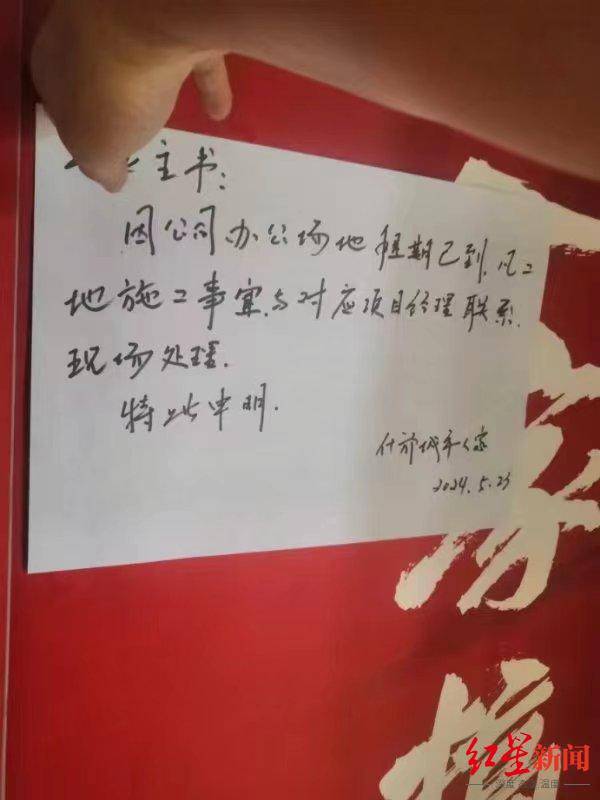 主书:
因公司办公场地租期已到.凡工
地施工事宜,与对应项目经理联系.
现场处理.
特此申明.
什邡城市人家
2024.5.23
红星新闻
深度 温度